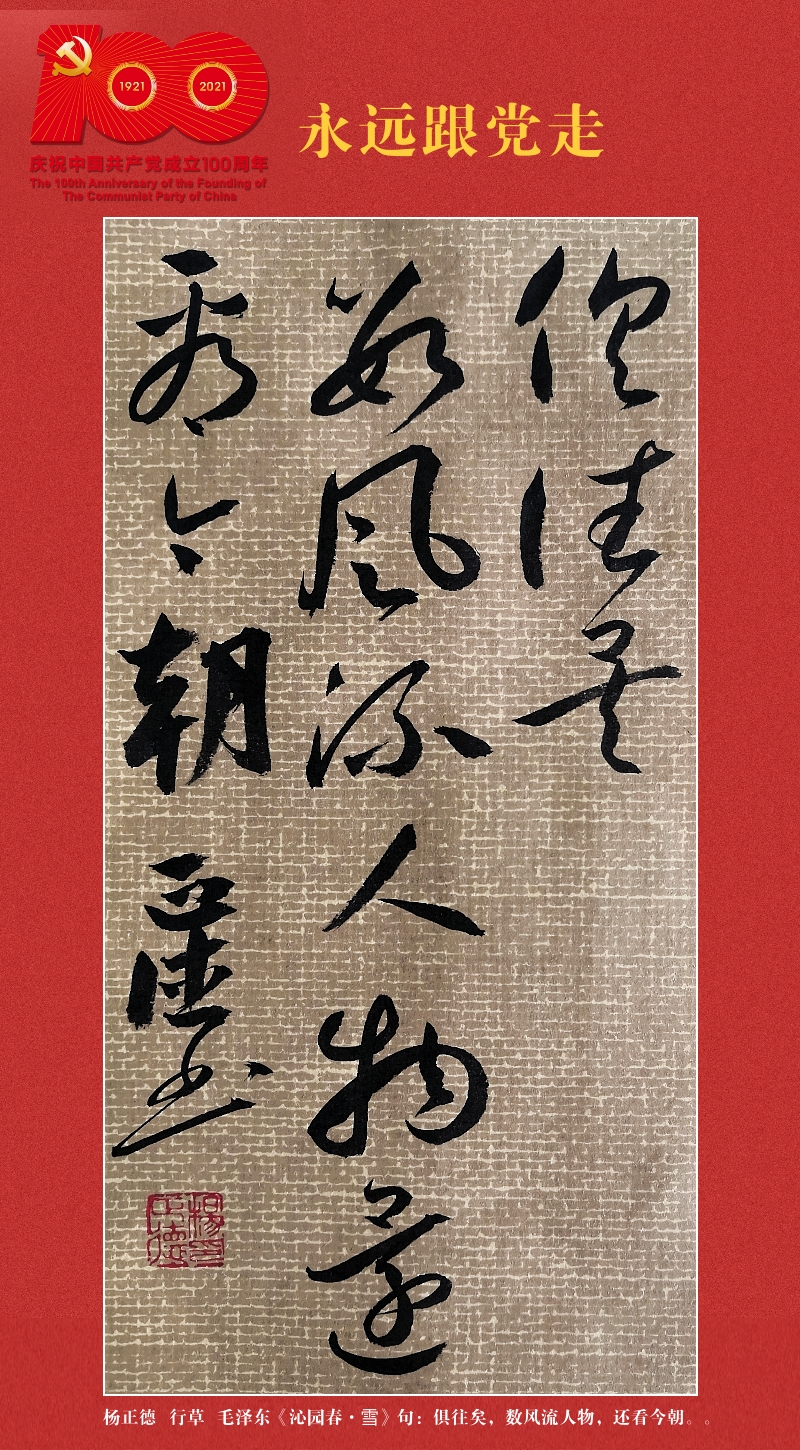 100
1921
2021
庆祝中国共产党成立100周年
The 100th Anniversary of the Founding of
The Communist Party of China
永远跟党走
俱往矣
数风流人物还
看今朝 正德书
楊正德印
杨正德 行草 毛泽东《沁园春·雪》句：俱往矣，数风流人物，还看今朝。。